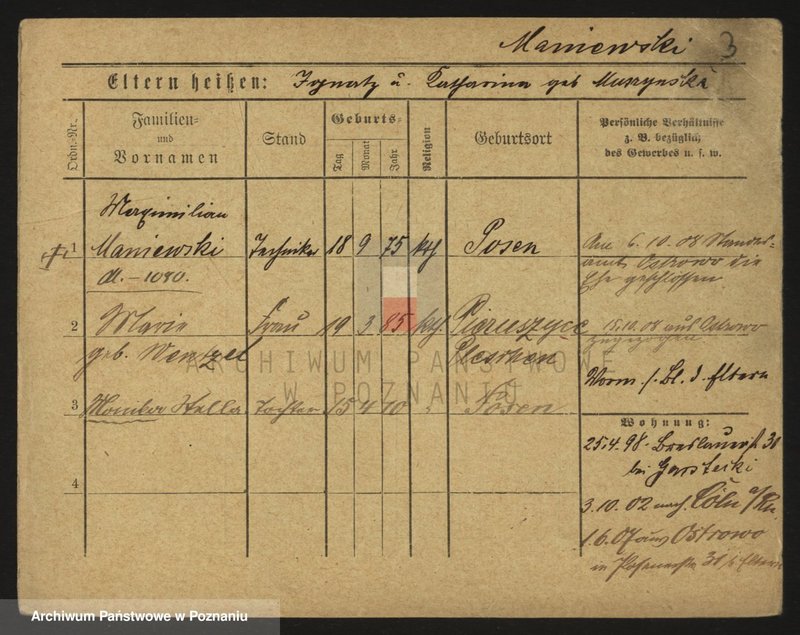 Maniewski 3
Eltern heißen: Ignatz u. Katharina geb Muszynski
Ordn.-Nr.
Familien- und Vornamen
Stand
Geburts-
Tag
Monat
Jahr
Religion
Geburtsort
Persönliche Verhältnisse
z. B. bezüglich
des Gewerbes u. s. w.
1 Maximilian
Maniewski Techniker 18 9 75 kth Posen
dt. - 1080.
Am 6.10.08 Standes-
amt Ostrowo die
Ehe geschlossen
2 Marie Frau 19 3 85 kth
geb. Wentzel Pleschen
15.10.08 aus Ostrowo
zugezogen
Vorm. s. Bl. d. Eltern
3 Monika Stella Tochter 15 4 10 " Posen
4
Wohnung:
25.4.98. Breslauerst 31
bei
3.10.02 nach Cöln a/Rh.
1.6.07 aus Ostrowo
in 31 Eltern
ARCHIWUM PAŃSTWOWE
W POZNANIU
Archiwum Państwowe w Poznaniu